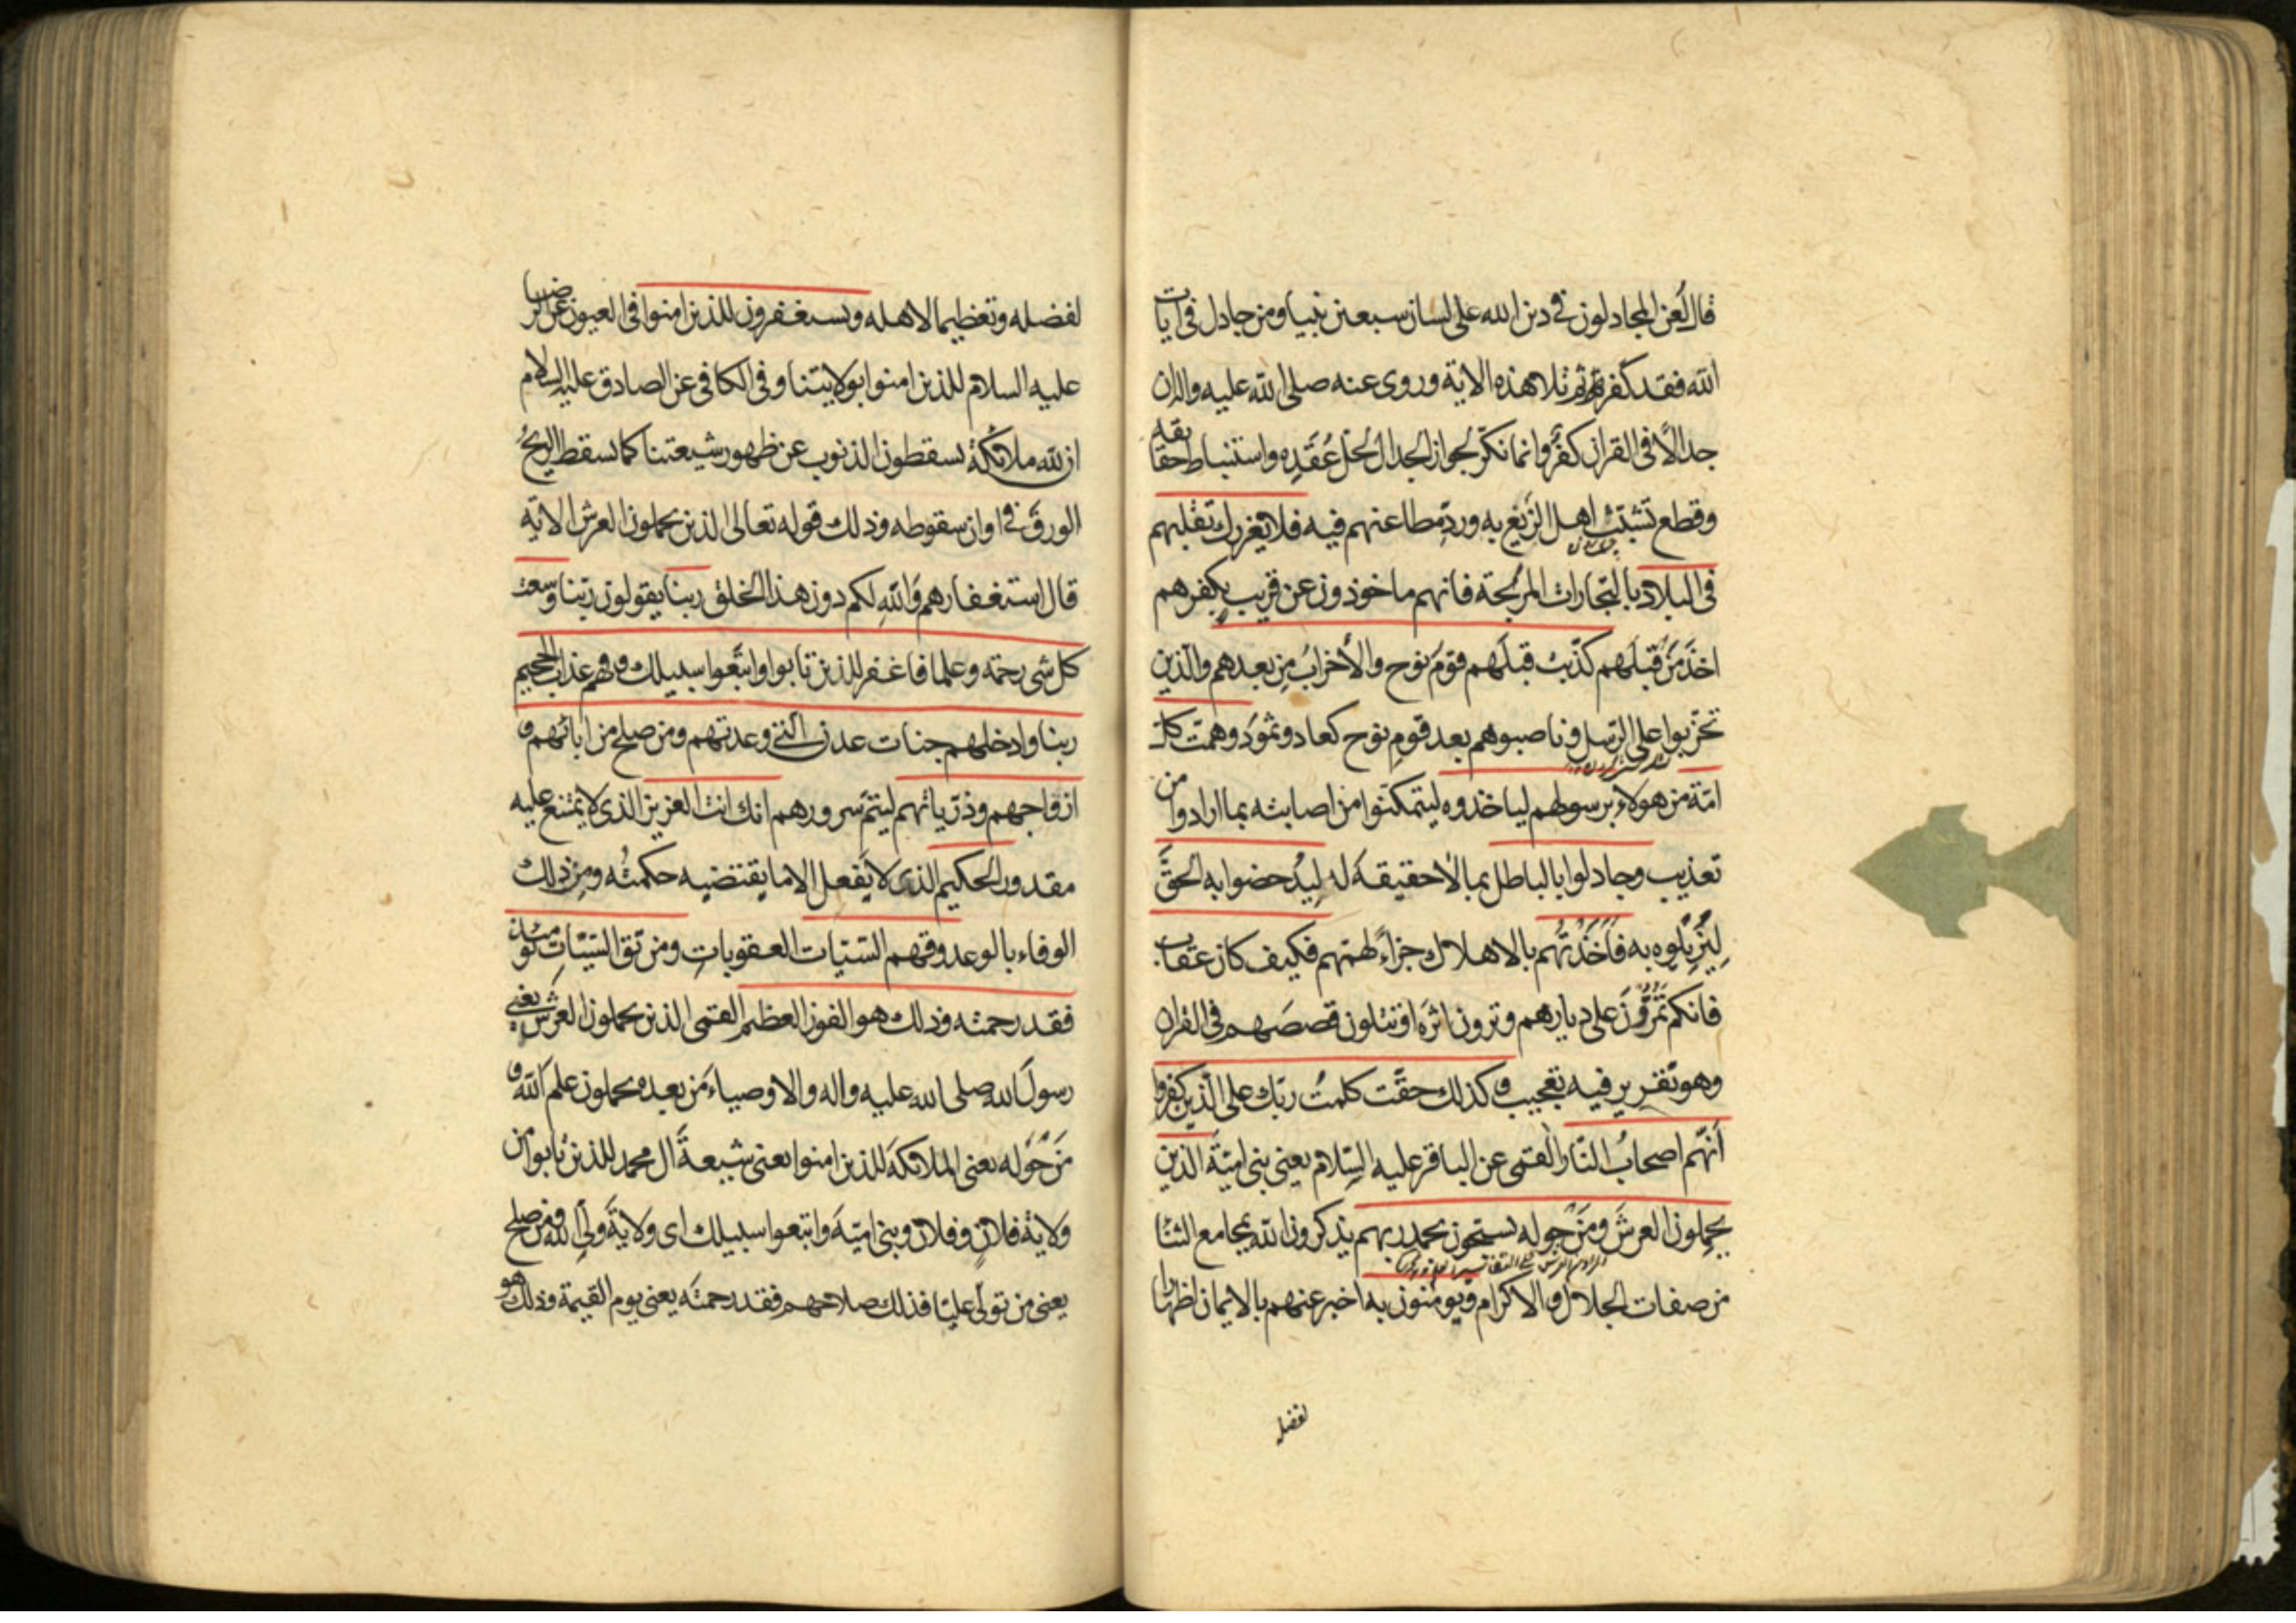 قال لعن المجادلون في دين الله على لسان سبعين نبيا ومن جادل في ايات
الله فقد كفر ثم تلا هذه الاية وروى عنه صلى الله عليه واله ان
جدالًا في القران كفرٌ وانما نكّر لجواز الجدال لحل عُقَدِه واستنباط حقايقه
وقطع تشبّث اهل الزَّيغ به وردِّ مطاعنهم فيه فلا يغررك تقلبهم
في البلاد بالتجارات المربحة فانهم ماخوذون عن قريب بكفرهم
اخذَ مَن قبلَهم كذّبت قبلَهم قومُ نوح والأحزابُ مِن بعدهم والّذين
تحزّبوا على الرّسل وناصبوهم بعد قوم نوح كعاد وثمودَ وهمّت كل
امّة من هولاء برسولهم لياخذوه ليتمكّنوا من اصابته بما ارادوا من
تعذيب وجادلوا بالباطل بما لا حقيقةَ له لِيُدحضوا به الحقَّ
لِيُزِيلوه به فاَخذتُهم بالاهلاك جزاءً لهمّهم فكيف كان عقاب
فانكم تَمُرُّونَ على ديارهم وترون اثرَه او تتلون قصصَهم في القران
وهو تقرير فيه تعجيب وكذلك حقّت كلمتُ ربّك على الّذين كفروا
أنّهم اصحابُ النّار القمي عن الباقر عليه السّلام يعنى بنى اميّةَ الّذين
يحمِلون العرشَ ومَن حوله يسبّحون بحمد ربهم يذكرون الله بمجامع الثنا
من صفات الجلال والاكرام ويومنون به اخبر عنهم بالايمان اظهارا
لفضله
لفضله وتعظيما لاهله ويستغفرون للذين امنوا في العيون عن الرضا
عليه السلام للذين امنوا بولايتنا وفى الكافى عن الصادق عليه السلام
ان لله ملائكةً يسقطون الذنوب عن ظهور شيعتنا كما يسقط الريحُ
الورقَ في اوان سقوطه وذلك قوله تعالى الذين يحملون العرش الاية
قال استغفارهم والله لكم دون هذا الخلق ربنا يقولون ربّنا وسعت
كل شى رحمة وعلما فاغفر للذين تابوا واتبعوا سبيلك وقهم عذاب الجحيم
ربنا وادخلهم جنات عدن التي وعدتهم ومن صلح من ابائهم و
ازواجهم وذرّياتهم ليتمّ سرورهم انك انت العزيز الذى لا يمتنع عليه
مقدور الحكيم الذى لا يَفعل الا ما يقتضيه حكمتُه ومن ذلك
الوفاء بالوعد وقهم السّيّات العقوباتِ ومن تق السّيّات يومئذ
فقد رحمته وذلك هو الفوز العظيم القمى الذين يحملون العرش يعنى
رسولَ الله صلى الله عليه واله والاوصياءَ من بعده يحملون علم الله و
مَن حوله يعنى الملائكةَ للذين امنوا يعنى شيعةَ ال محمد للذين تابوا من
ولاية فلانٍ وفلان وبنى اميّة واتبعوا سبيلك اى ولايةَ ولّى الله ومن صلح
يعنى من تولّى عليّا فذلك صلاحهم فقد رحمتَه يعنى يوم القيمة وذلك هو